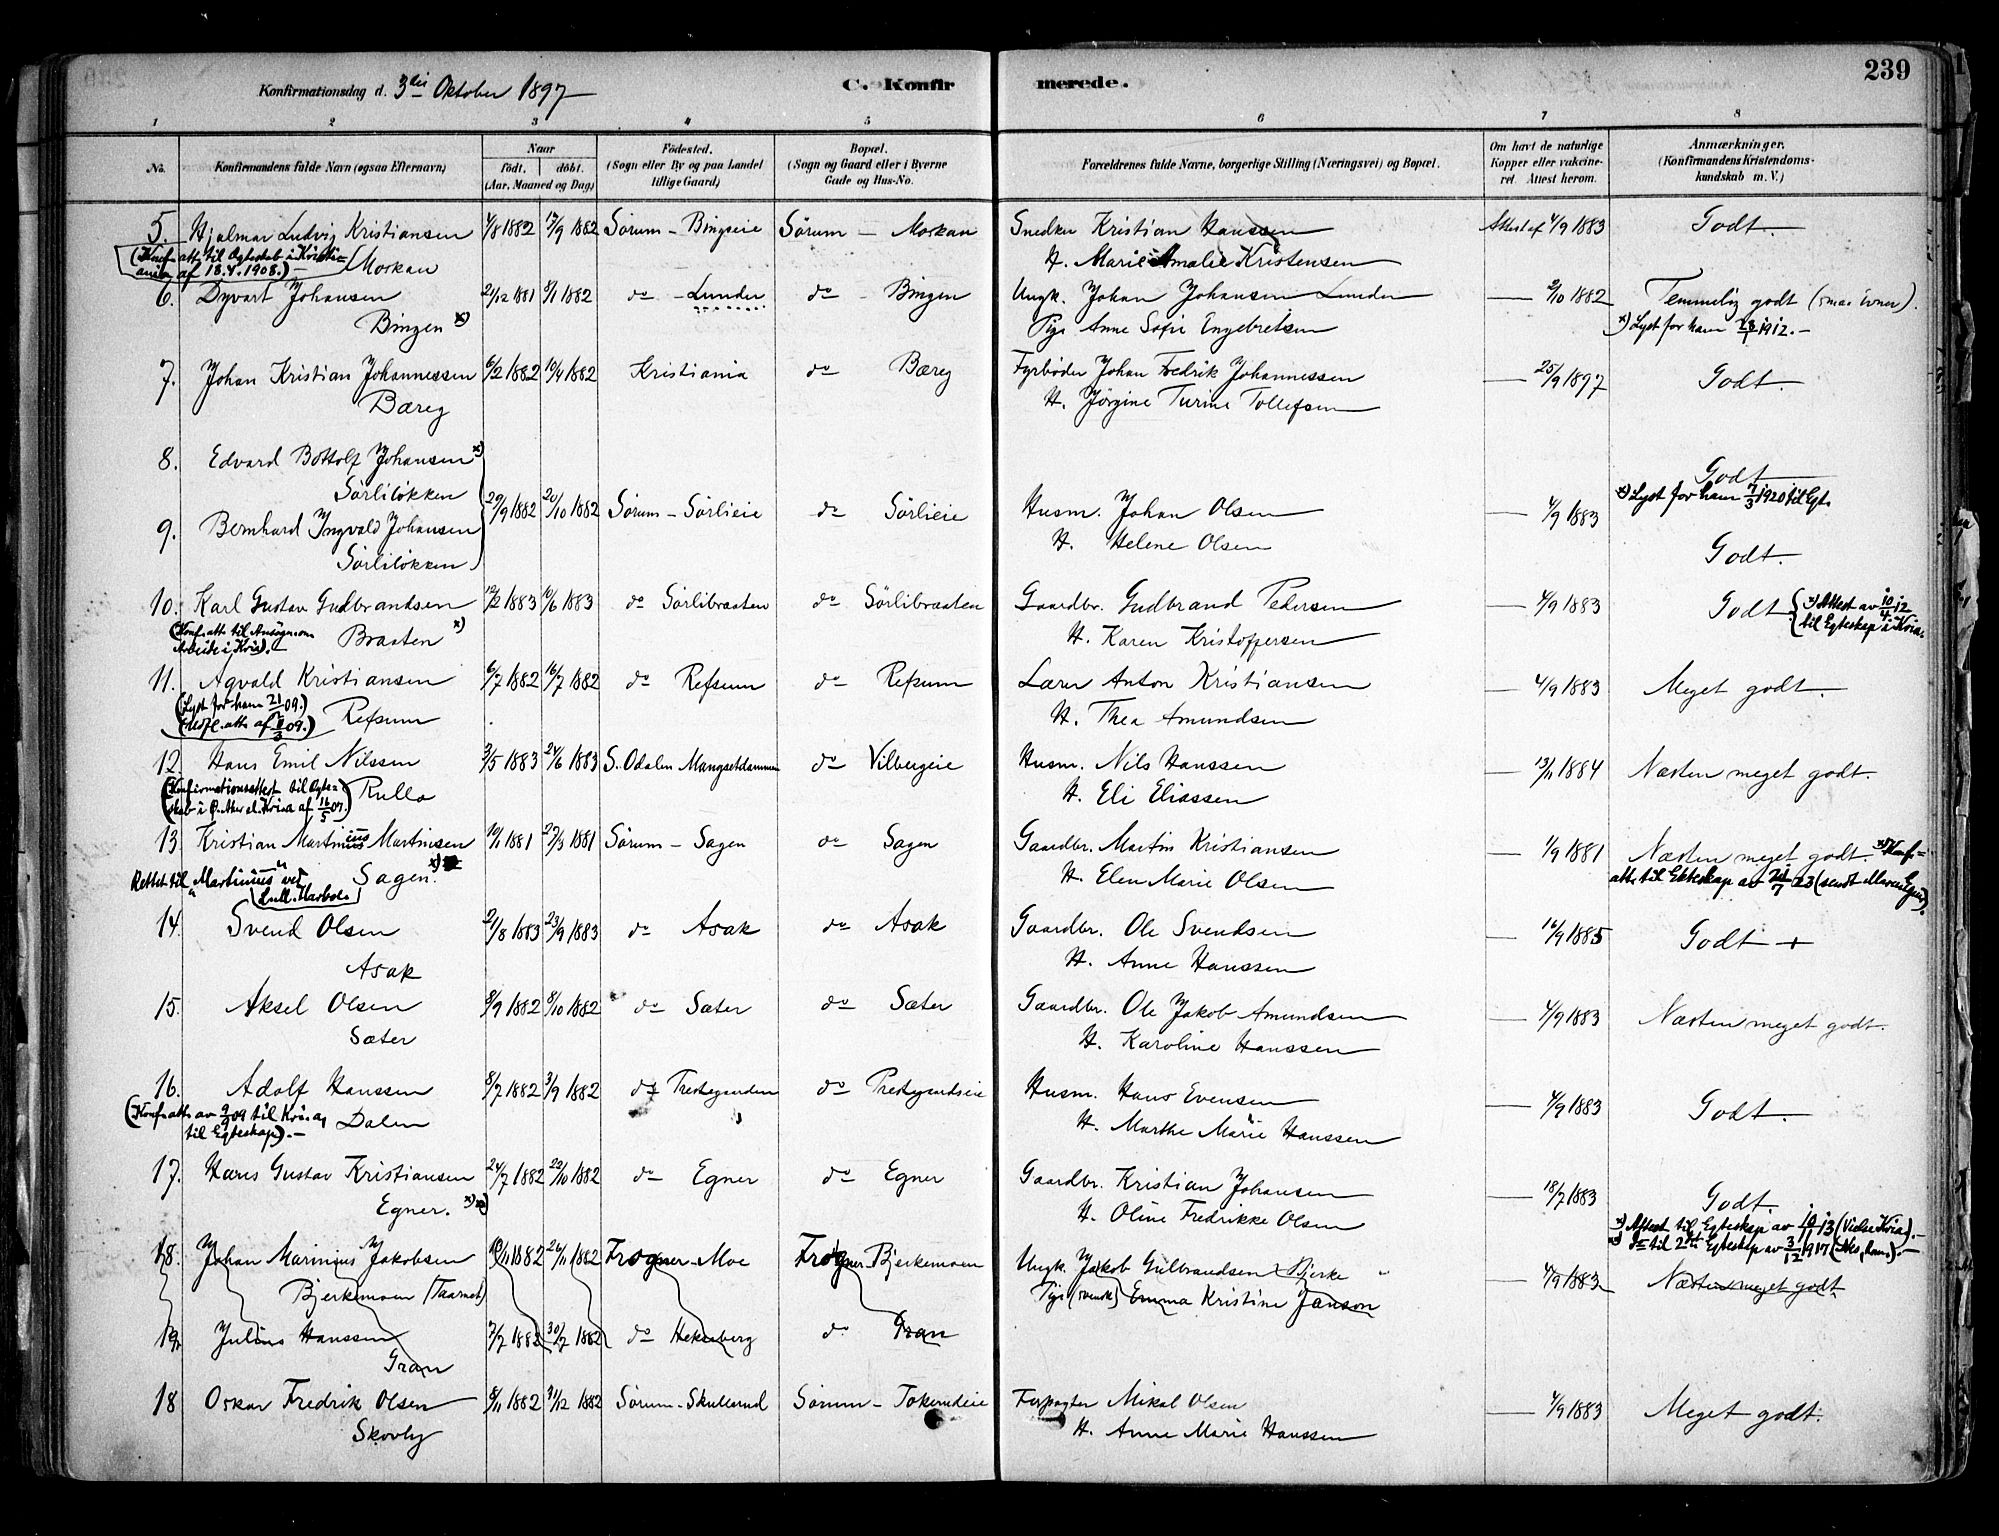 Konfirmationsdag d. 3die Oktober 1897 C. Konfirmerede. 239
1 2 3 4 5 6 7 8
No. Konfirmandens fulde Navn (ogsaa Efternavn) Naar födt. döbt. (Aar, Maaned og Dag) Födested. (Sogn eller By og paa Landet tillige Gaard.) Bopæl. (Sogn og Gaard eller i Byerne Gade og Hus-No. Forældrenes fulde Navne, borgerlige Stilling (Næringsvei) og Bopæl. Om havt de naturlige Kopper eller vakcineret. Attest herom. Anmærkninger. (Konfirmandens Kristendomskundskab m. V.)
5. Hjalmar Ludvig Kristiansen 4/8 1882 17/9 1882 Sørum - Bingseie Sørum - Moskau Snedker Kristian Hanssen Attest af 4/9 1883 Godt.
(Konf. att. til Ægteskab i Kristiania af 18.4.1908.) - Moskau H. Marie Amalie Kristensen
6. Dyvart Johansen 21/12 1881 8/1 1882 do - Lunder do - Bingen Ungk. Johan Johansen Lunder - 2/10 1882 Temmelig godt (smaa Evner).
Bingen x) Pige Anne Sofie Engebretsen x) Lyst for ham 28/1 1912. -
7. Johan Kristian Johannessen 6/2 1882 10/4 1882 Kristiania do Bæreg Fyrbøder Johan Fredrik Johannessen - 25/9 1897 Godt.
Bæreg H. Jörgine Turine Tollefsen
8. Edvard Bottolf Johansen x) Godt
Sørliløkken x) Lyst for ham 7/3 1920 til Egt.
29/9 1882 20/10 1882 Sørum - Sørlieie do Sørlieie Husm. Johan Olsen - 4/9 1883
9. Bernhard Ingvald Johansen H. Helene Olsen Godt.
Sørliløkken
10. Karl Gustav Gudbrandsen 12/2 1883 10/6 1883 do Sørlibraaten do Sørlibraaten Gaardbr. Gudbrand Pedersen - 4/9 1883 Godt x) Attest av 10/4 12 til Egteskap i Kria.
(Konf. att. til Ansøgn. om Arbeide i Kria). Braaten x) H. Karen Kristoffersen
11. Agvald Kristiansen 6/7 1882 16/7 1882 do Refsum do Refsum Lærer Anton Kristiansen - 4/9 1883 Meget godt.
(Lyst for ham 21/ 09.) (Udfl. att. af /3 09.) Refsum H. Thea Amundsen
12. Hans Emil Nilssen 3/5 1883 24/6 1883 S. Odalen Mangsetdammen do Vilbergeie Husm. Nils Hanssen - 13/11 1884 Næsten meget godt.
(Konfirmationsattest til Ægteskab i Ø. Aker el. Kria af 16/5 07.) Rullo H. Eli Eliassen
13. Kristian Martinius Martinsen 10/1 1881 27/3 1881 Sørum - Sagen do Sagen Gaardbr. Martin Kristiansen - 4/9 1881 Næsten meget godt. x) Konf.-
Rettet til "Martinius" ved Lull. Harbole Sagen. x) H. Elen Marie Olsen att. til Ekteskap av /7 23 (sendt Maren Egner).
14. Svend Olsen 21/8 1883 23/9 1883 do Asak do Asak Gaardbr. Ole Svendsen - 16/9 1885 Godt +
Asak H. Anne Hanssen
15. Aksel Olsen 8/9 1882 8/10 1882 do Sæter do Sæter Gaardbr. Ole Jakob Amundsen - 4/9 1883 Næsten meget godt.
Sæter H. Karoline Hanssen
16. Adolf Hanssen 8/7 1882 3/9 1882 do Prestegarden do Prestegardseie Husm. Hans Evensen - 4/9 1883 Godt.
(Konf. att. av 9/9 09 til Kria, til Egteskap). - Dalen H. Marthe Marie Hanssen
17. Hans Gustav Kristiansen 24/7 1882 29/10 1882 do Egner do Egner Gaardbr. Kristian Johansen - 18/7 1883 Godt
Egner. x) H. Oline Fredrikke Olsen x) Attest til Egteskap av 10/ 13 (Vielse Kria). -
18. Johan Marinius Jakobsen 10/11 1882 26/11 1882 Frogner - Moe Frogner - Bjerkemoen Ungk. Jakob Gulbrandsen Bjerke do til 2det Egteskap av 3/12 1917 (Nes, Rom.) -
Bjerkemoen (Taarnet) Pige (svensk) Emma Kristine Janson - 4/9 1883 Næsten meget godt
19. Julius Hanssen 7/7 1882 30/7 1882 do Hekseberg do Gran
Gran
18 Oskar Fredrik Olsen 8/11 1882 31/12 1882 Sørum - Skullerud Sørum - Tokerudeie Forpagter Mikal Olsen 4/9 1883 Meget godt.
Skovly H. Anne Marie Hanssen